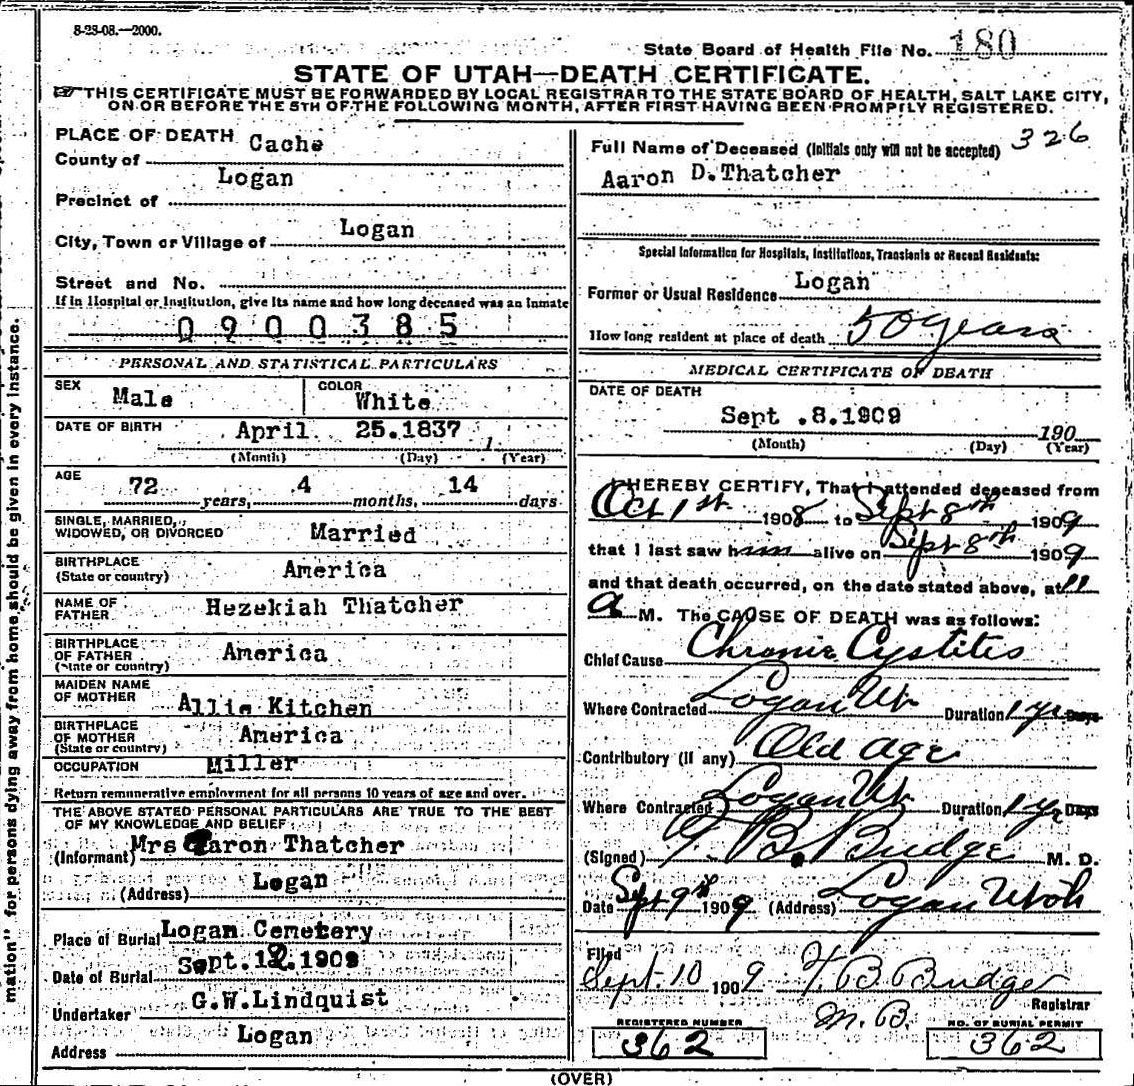 8-23-08.—2000.
State Board of Health File No. 180
STATE OF UTAH—DEATH CERTIFICATE.
THIS CERTIFICATE MUST BE FORWARDED BY LOCAL REGISTRAR TO THE STATE BOARD OF HEALTH, SALT LAKE CITY,
ON OR BEFORE THE 5TH OF THE FOLLOWING MONTH, AFTER FIRST HAVING BEEN PROMPTLY REGISTERED.
PLACE OF DEATH
County of Cache
Precinct of Logan
City, Town or Village of Logan
Street and No.
If in Hospital or Institution, give its name and how long deceased was an inmate
0900385
PERSONAL AND STATISTICAL PARTICULARS
SEX Male COLOR White
DATE OF BIRTH April 25.1837 1
(Month) (Day) (Year)
AGE
72 years, 4 months, 14 days
SINGLE, MARRIED,
WIDOWED, OR DIVORCED Married
BIRTHPLACE
(State or country) America
NAME OF
FATHER Hezekiah Thatcher
BIRTHPLACE
OF FATHER
(State or country) America
MAIDEN NAME
OF MOTHER Allie Kitchen
BIRTHPLACE
OF MOTHER
(State or country) America
OCCUPATION Miller
Return remunerative employment for all persons 10 years of age and over.
THE ABOVE STATED PERSONAL PARTICULARS ARE TRUE TO THE BEST
OF MY KNOWLEDGE AND BELIEF
(Informant) Mrs Aaron Thatcher
(Address) Logan
Place of Burial Logan Cemetery
Date of Burial Sept.12.1909
Undertaker G.W.Lindquist
Address Logan
326
Full Name of Deceased (Initials only will not be accepted)
Aaron D.Thatcher
Special Information for Hospitals, Institutions, Transients or Recent Residents:
Former or Usual Residence Logan
How long resident at place of death 50 years
MEDICAL CERTIFICATE OF DEATH
DATE OF DEATH
Sept .8.1909 190
(Month) (Day) (Year)
I HEREBY CERTIFY, That I attended deceased from
Oct 1st 1908 to Sept 8th 1909
that I last saw him alive on Sept 8th 1909
and that death occurred, on the date stated above, at 11
a M. The CAUSE OF DEATH was as follows:
Chief Cause Chronic Cystites
Where Contracted Logan Ut Duration 1 yr Days
Contributory (if any) Old age
Where Contracted Logan Ut Duration 1 yr Days
(Signed) T B. Budge M. D.
Date Sept 9th 1909 (Address) Logan Utah
Filed
Sept. 10 1909 T. B. Budge
Registrar
M. B.
REGISTERED NUMBER
362
NO. OF BURIAL PERMIT
362
(OVER)
mation" for persons dying away from home should be given in every instance.